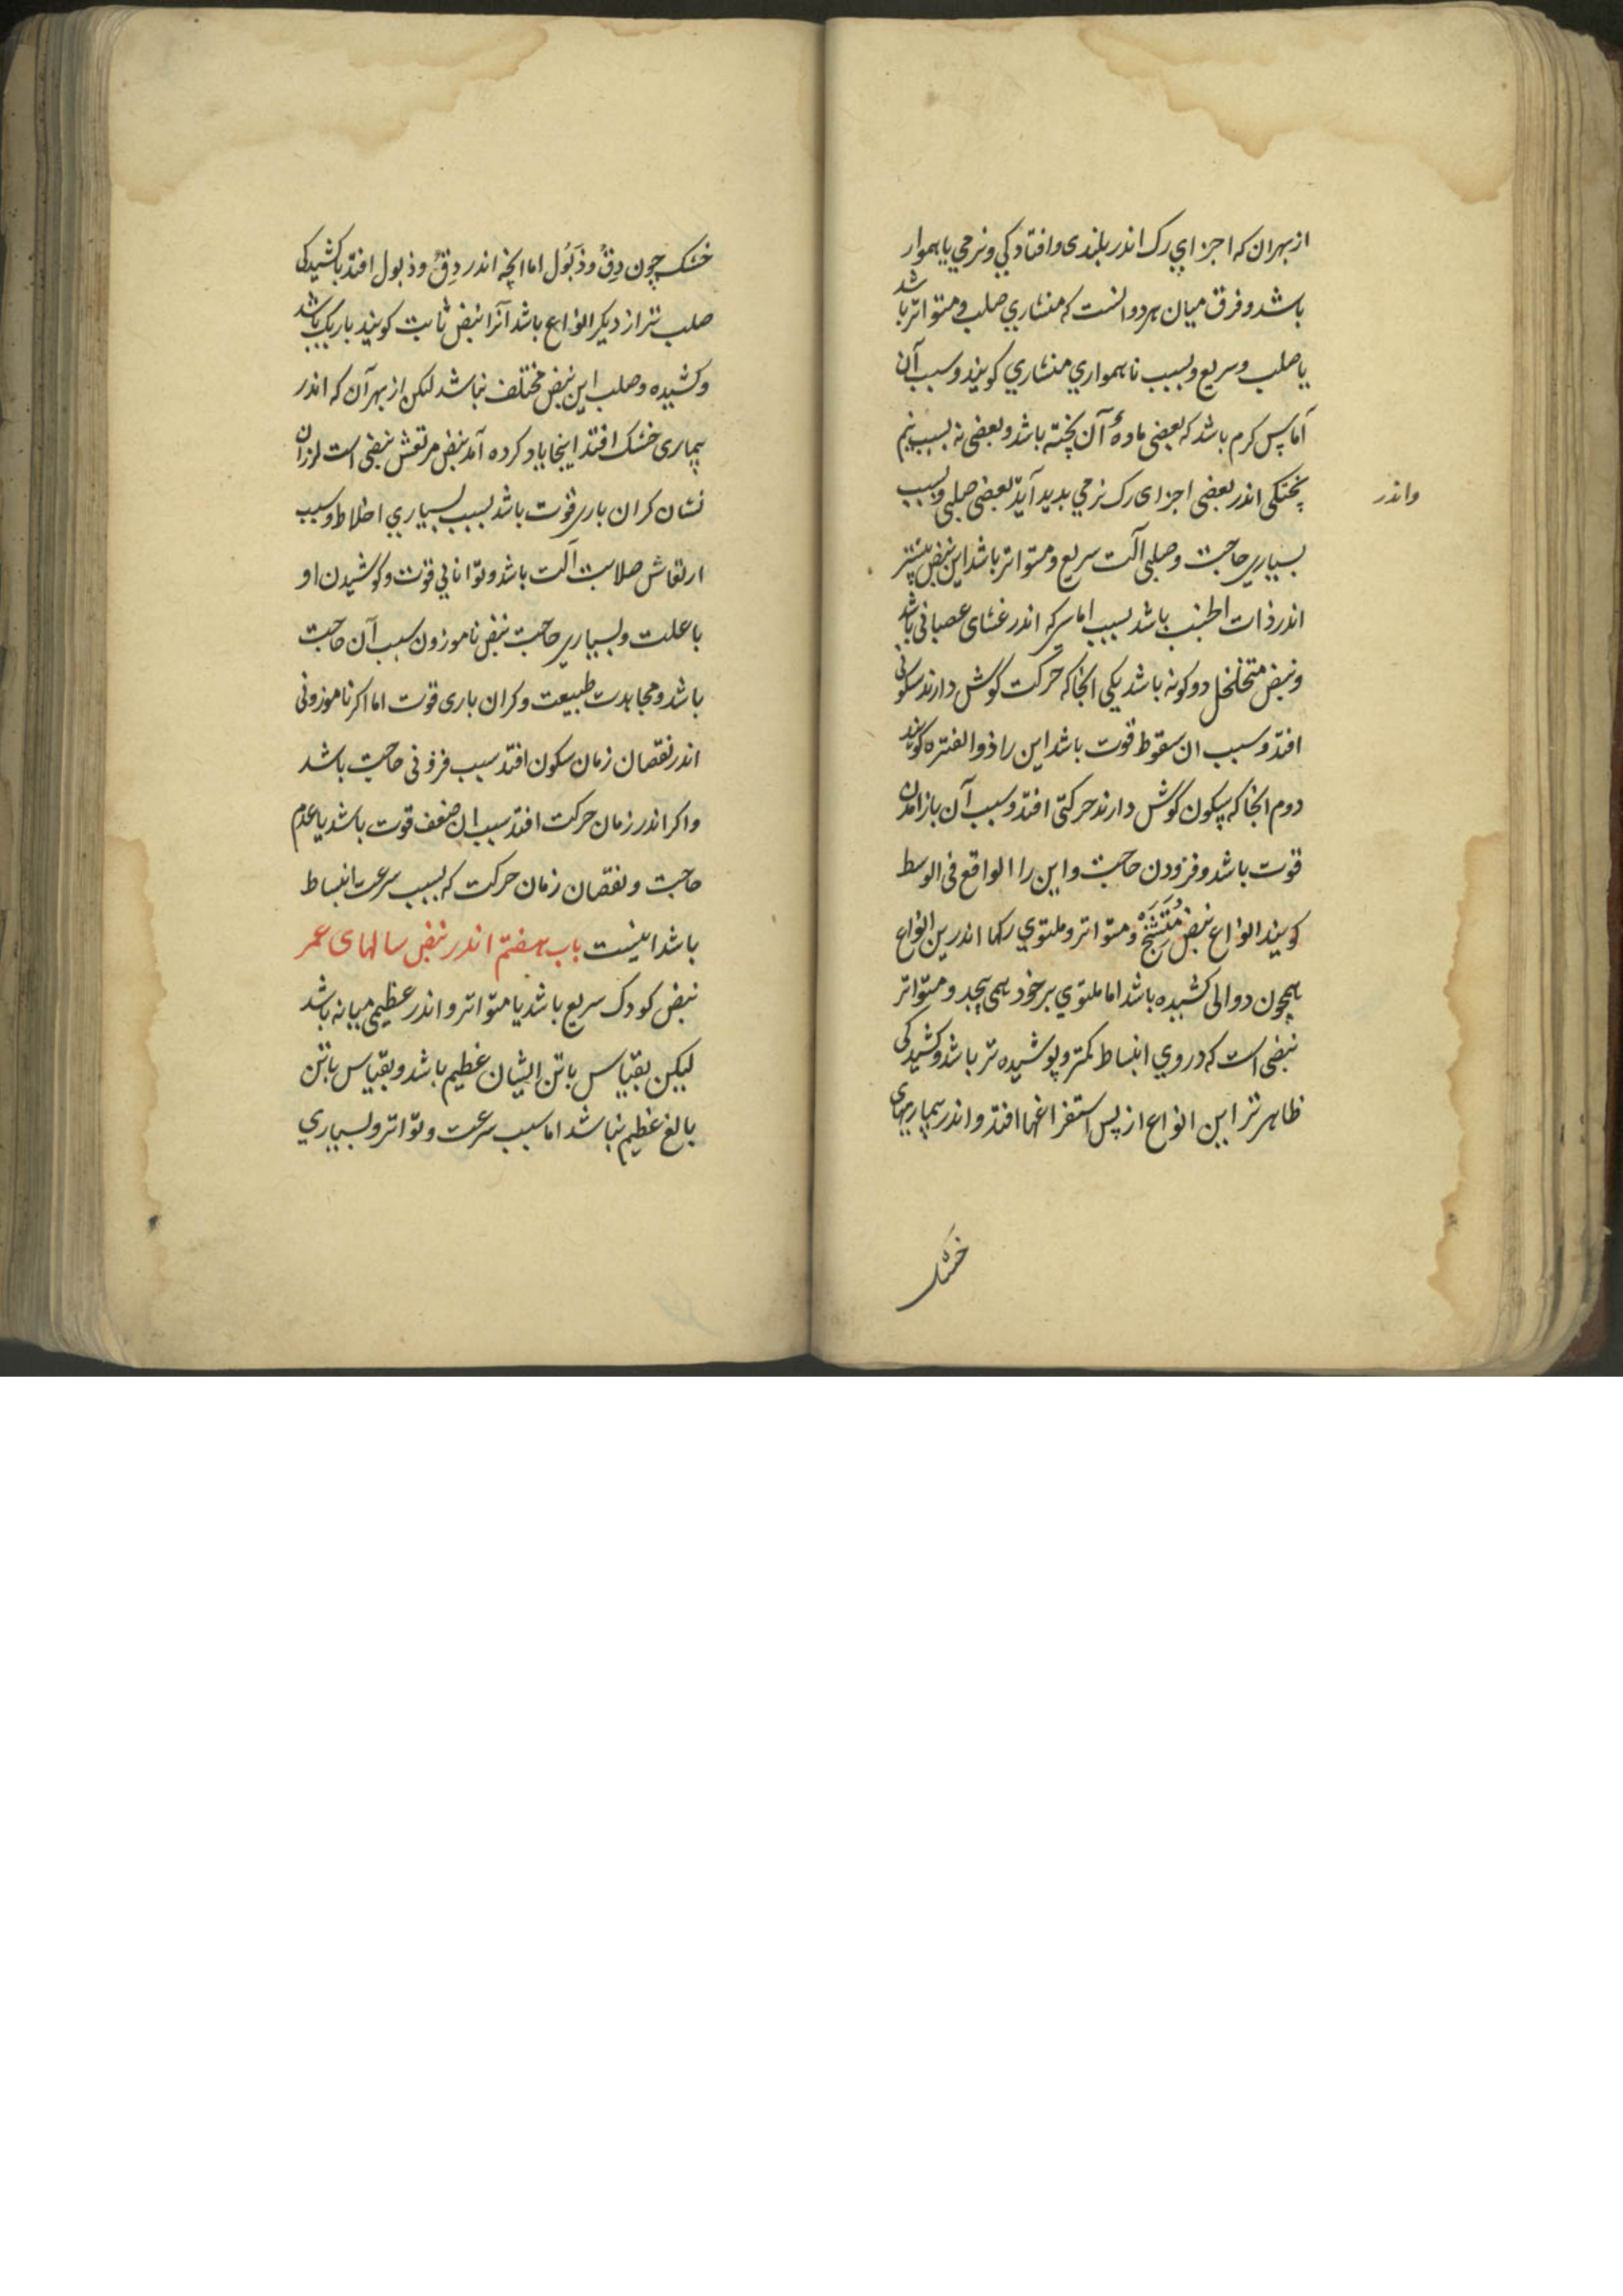 از بهر ان که اجزای رک اندر بلندی و افتادکی و نرمی یا هموار
باشد و فرق میان هر دو انست که منشاری صلب و متواتر باشد
یا صلب و سریع و بسبب ناهمواری منشاری کویند و سبب آن
آماس کرم باشد که بعضی مادهٔ آن پخته باشد و بعضی نه بسبب نیم
پختکی اندر بعضی اجزای رک نرمی بدید آید بعضی صلبی و بسبب
واندر
بسیاری حاجت و صلبی الت سریع و متواتر باشد این نبض بیشتر
اندر ذات الجنب باشد بسبب اماس که اندر غشای عصبانی باشد
و نبض متخلخل دو کونه باشد یکی انجا که حرکت کوش دارند سکونی
افتد و سبب ان سقوط قوت باشد این را ذو الفتره کویند
دوم انجا که بسکون کوش دارند حرکتی افتد و سبب آن باز امدن
قوت باشد و فزودن حاجت و این را الواقع فی الوسط
کویند انواع نبض مُتَشَنِّجْ و متواتر و ملتوی رکها اندرین انواع
همچون دوالی کشیده باشد اما ملتوی بر خود همی پیچد و متواتر
نبضی است که در وی انبساط کمتر و پوشیده تر باشد و کشیدکی
ظاهرتر این انواع از پس استفراغها افتد و اندر بیماریهای
خشک
خشک چون دِقّْ و ذُبُول اما انچه اندر دِقّْ و ذبول افتد با کشیدکی
صلب تر از دیکر انواع باشد آنرا نبض ثابت کویند باریک باشد
و کشیده و صلب این نبض مختلف نباشد لکن از بهر آن که اندر
بیماری خشک افتد اینجا یاد کرده آمد نبض مرتعش نبضی است لرزان
نشان کران باری قوت باشد بسبب بسیاری اخلاط و سبب
ارتعاش صلابت آلت باشد و توانایی قوت و کوشیدن او
با علت و بسیاری حاجت نبض ناموزون سبب آن حاجت
باشد و مجاهدت طبیعت و کران باری قوت اما اکر ناموزونی
اندر نقصان زمان سکون افتد سبب فزونی حاجت باشد
و اکر اندر زمان حرکت افتد سبب ان ضعف قوت باشد یا عدم
حاجت و نقصان زمان حرکت که بسبب سرعت انبساط
باشد اینست باب هفتم اندر نبض سالهای عمر
نبض کودک سریع باشد یا متواتر و اندر عظیمی میانه باشد
لیکن بقیاس با تن ایشان عظیم باشد و بقیاس با تن
بالغ عظیم نباشد اما سبب سرعت و تواتر و بسیاری